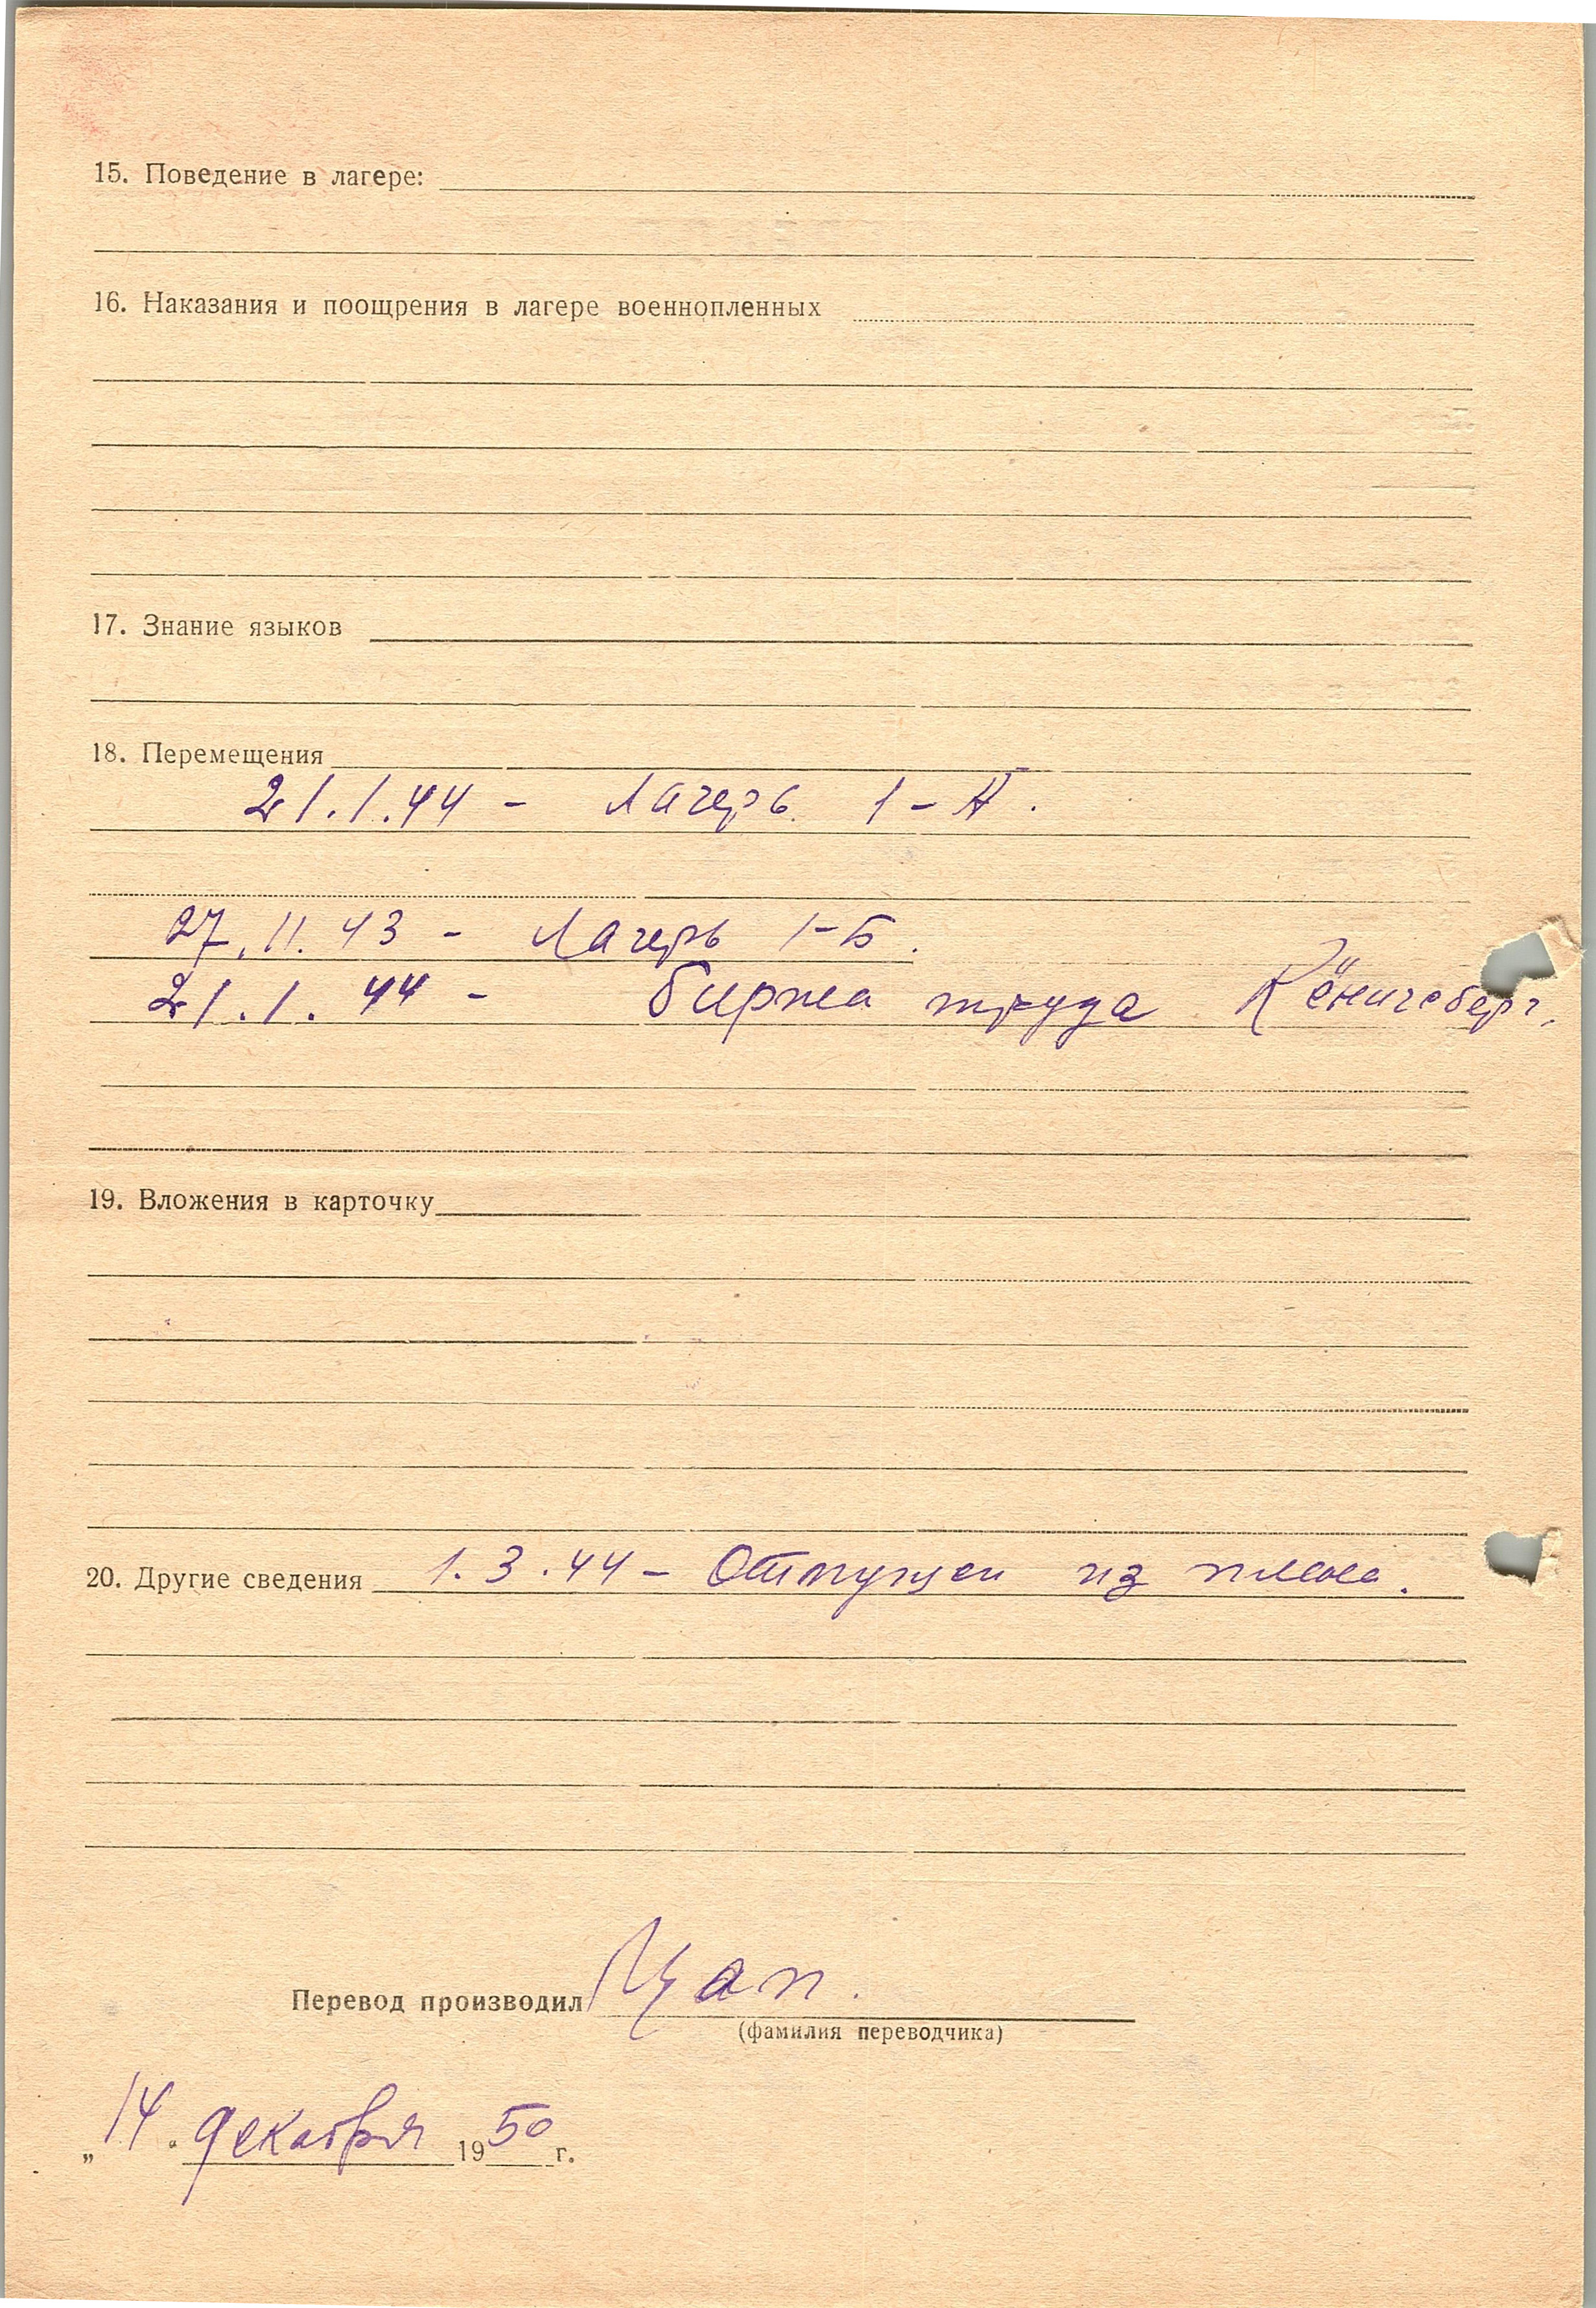 15. Поведение в лагере:
16. Наказания и поощрения в лагере военнопленных
17. Знание языков
18. Перемещения
21.1.44 - Лагерь 1-А.
27.11.43 - Лагерь 1-Б.
21.1.44 - биржа труда Кёнигсберг.
19. Вложения в карточку
20. Другие сведения 1.3.44 - Отпущен из плена.
Перевод производил Цап.
(фамилия переводчика)
„14" декабря 1950 г.